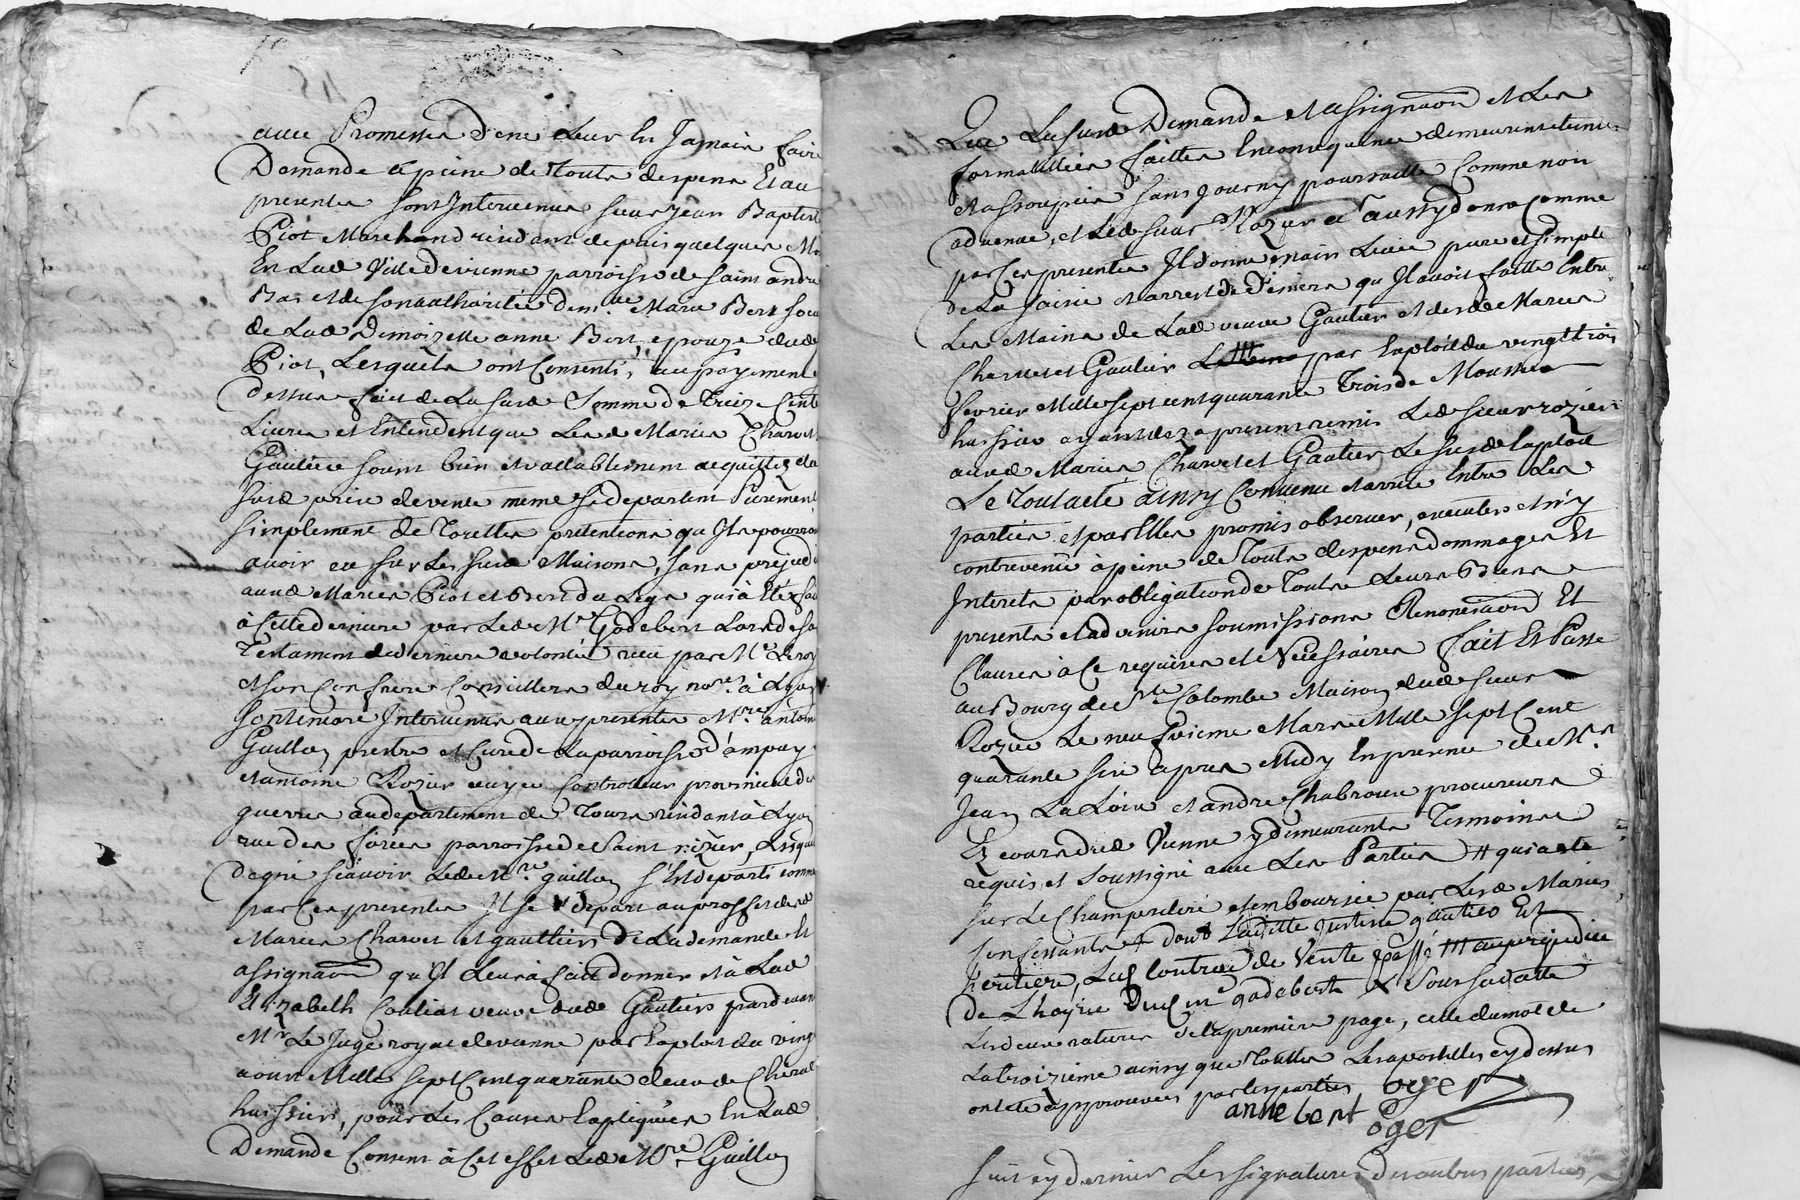 avec Promesses d'ene Leur En Jamais faire
Demande à peine de Touts despens Et au
presentes sont Intervenus sieur jean Baptiste
Piot Marchand residant depuis quelques
En Lad Ville de vienne parroisse de saint andré
Bas et de son authorité dem.lle Marie Bert
de Lad Demoizelle anne Bert epouze dud
Piot, Lesquels ont Consenti au payement
dessus fait de La susd Somme de Treize Cents
Livres et Entendent que Lesd Mariés Charvet
Gautier sount bien et vallablement acquittés du
susd prix de vente meme se departent Purement
simplement de Toutes pretentions qu'Ils pourroient
avoir eu sur Les susd Maisons, sans prejudice
auxd Mariés Piot et Bert du Legs qui a Eté fait
à Cette derniere par Led Mr Godebert Lors de son
Testament de derniere volonté reçu par Me Leroy
et son Confrere Conseillers du roy nores à Lyon
sont encore Intervenus aux presentes Mre antoine
Guillon prestre et Curé de La parroisse d'ampuy
et antoine Rozier ecuyer Controlleur provincial des
guerres au departement de Tours residant à Lyon
rue des forces parroisse de Saint nizier, Lesquels
de gré sçavoir Led Mre guillon s'est departi comme
par Ces presentes Il se depart au proffit desd
Mariés Charvet et gauttier De La demande Et
assignaõn qu'Il Leur a fait donner et à Lad
Elizabeth veuve dud Gautier pardevant
Mr Le Juge royal de vienne par Exploit du vingt
aoust Mille Sept Cent quarante deux de Cheval
huissier, pour Les Causes Expliquées En Lad
Demande Consent à Cet effet Led Mre Guillon
Que La susd Demande et assignaõn et Les
formallitées faittes En consequence demeurent eteintes
et assoupies sans pouvoir poursuitte Comme non
advenue, et Led sieur Rozier a aussy donné comme
par Ces presentes Il donne main Levée pure et simple
de La saisie et arrest de deniers qu'Il avoit faitte Entre
Les Mains de Lad veuve Gautier et desd Mariés
Charvet et Gautier par Exploit du vingt trois
fevrier Mille sept cent quarante Trois de Mousnier
huissier ayant dez a present remis Led sieur rozier
auxd Mariés Charvet et Gautier Le susd Exploit
Le Tout acté ainsy Convenu et arreté Entre Les
parties et par Elles promis observer, executer et n'y
contrevenir à peine de Touts despens dommages Et
Interets par obligation de Touts Leurs Biens
presents et advenirs soumissions Renonciaõns Et
Clauses à Ce requises et Necessaires Fait Et Passé
au Bourg de Ste Colombe Maison dud sieur
Rozier Le neufvieme Mars Mille Sept Cent
quarante six apres Midy En presence de Mrs
Jean La Loire et andre Chabroux procureurs
Ez cours dud Vienne y demeurants Temoins
requis et soussigné avec Les Parties # qui a eté
sur Le Champ retiré et emboursée par Lesd Mariés
Confessants + dont Laditte Justine gautier Et
heritiere, Lesd Contract de Vente passé ttt au prejudice
De L'hoyrie Dud mr godebert X Sous
Les deux ratures de la premiere page, celle du mot de
La troizieme ainsy que Toutes Les apostilles cy dessus
ont eté approuvées par les parties oger
anne bert oger
suivent cy derrier Les signatures des autres parties